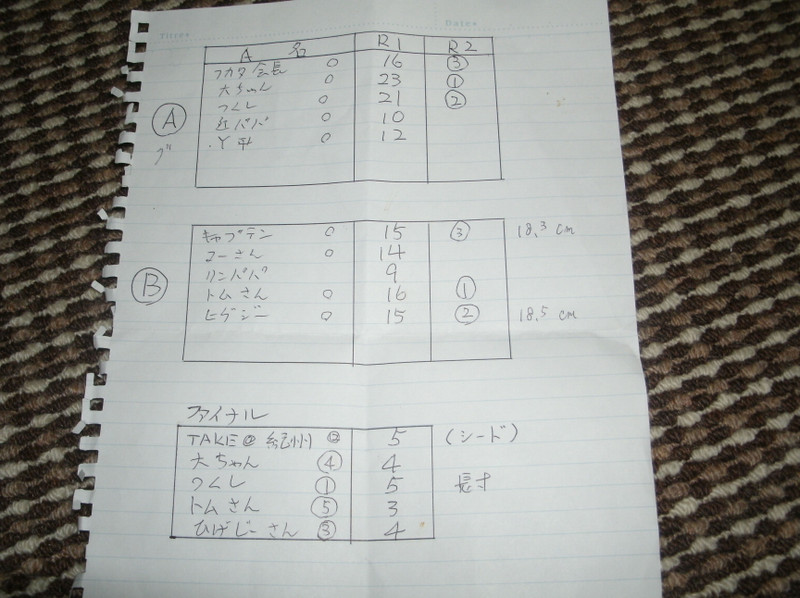 Titres Dates
A 名 R1 R2
フカタ会長 ○ 16 ③
大ちゃん ○ 23 ①
つくし ○ 21 ②
紅パパ ○ 10
Y平 ○ 12
Ⓐ
グ
キャプテン ○ 15 ③ 18.3 cm
コーさん ○ 14
リンパパ 9
トムさん ○ 16 ①
ヒゲジー ○ 15 ② 18.5 cm
Ⓑ
ファイナル
TAKE@紀州 ② 5 (シード)
大ちゃん ④ 4
つくし ① 5 長寸
トムさん ⑤ 3
ひげじーさん ③ 4